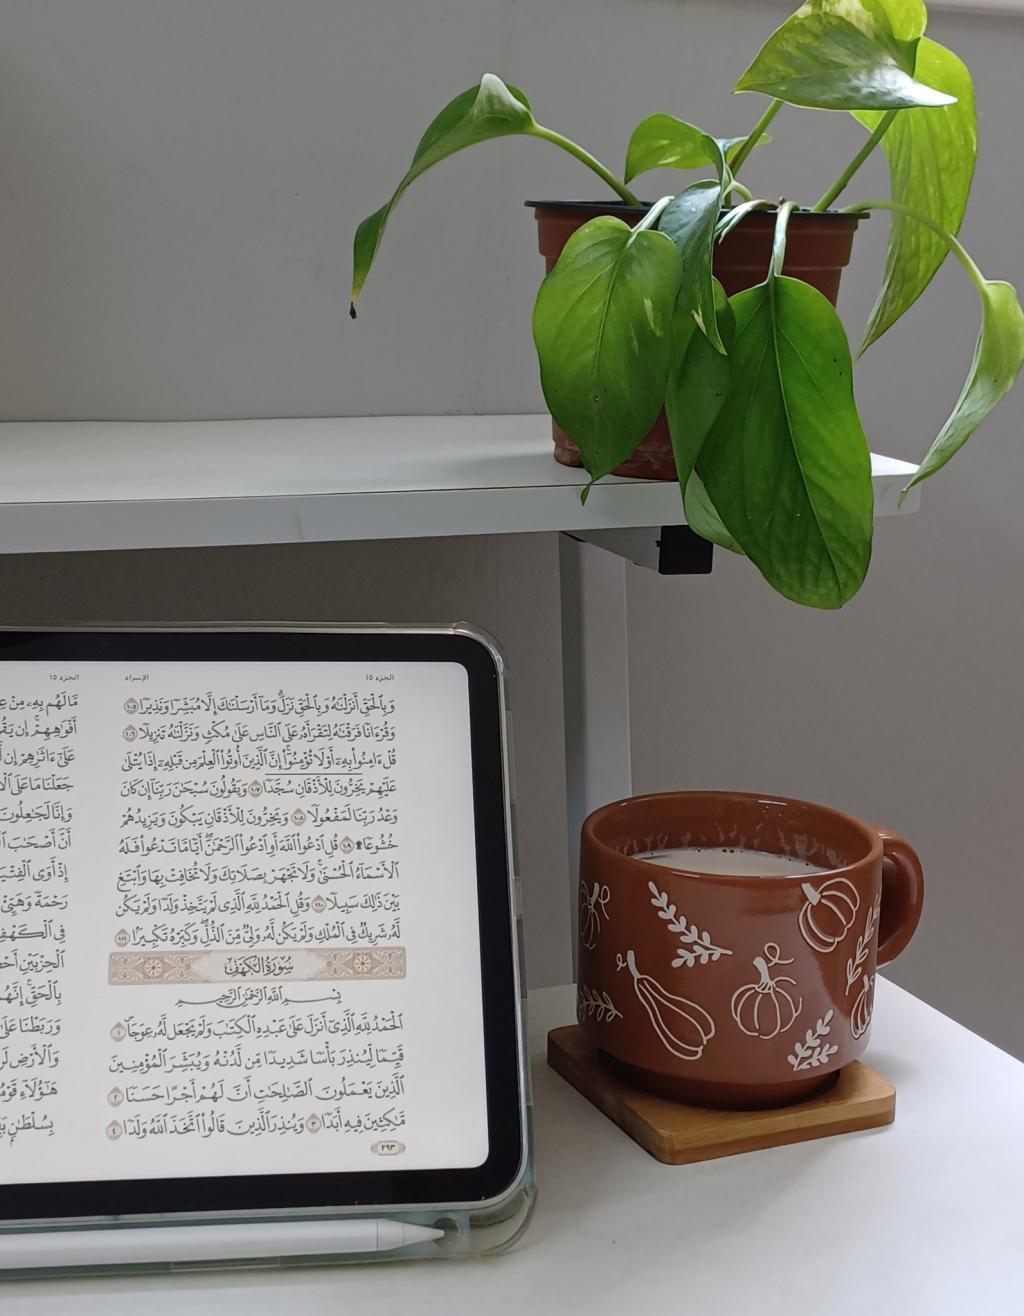 الجزء ١٥
الإسراء
وَبِٱلْحَقِّ أَنزَلْنَٰهُ وَبِٱلْحَقِّ نَزَلَ ۗ وَمَآ أَرْسَلْنَٰكَ إِلَّا مُبَشِّرًا وَنَذِيرًا ١٠٥
وَقُرْءَانًا فَرَقْنَٰهُ لِتَقْرَأَهُۥ عَلَى ٱلنَّاسِ عَلَىٰ مُكْثٍ وَنَزَّلْنَٰهُ تَنزِيلًا ١٠٦
قُلْ ءَامِنُوا۟ بِهِۦٓ أَوْ لَا تُؤْمِنُوٓا۟ ۚ إِنَّ ٱلَّذِينَ أُوتُوا۟ ٱلْعِلْمَ مِن قَبْلِهِۦٓ إِذَا يُتْلَىٰ
عَلَيْهِمْ يَخِرُّونَ لِلْأَذْقَانِ سُجَّدًا ١٠٧ وَيَقُولُونَ سُبْحَٰنَ رَبِّنَآ إِن كَانَ
وَعْدُ رَبِّنَا لَمَفْعُولًا ١٠٨ وَيَخِرُّونَ لِلْأَذْقَانِ يَبْكُونَ وَيَزِيدُهُمْ
خُشُوعًا ۩ ١٠٩ قُلِ ٱدْعُوا۟ ٱللَّهَ أَوِ ٱدْعُوا۟ ٱلرَّحْمَٰنَ ۖ أَيًّا مَّا تَدْعُوا۟ فَلَهُ
ٱلْأَسْمَآءُ ٱلْحُسْنَىٰ ۚ وَلَا تَجْهَرْ بِصَلَاتِكَ وَلَا تُخَافِتْ بِهَا وَٱبْتَغِ
بَيْنَ ذَٰلِكَ سَبِيلًا ١١٠ وَقُلِ ٱلْحَمْدُ لِلَّهِ ٱلَّذِى لَمْ يَتَّخِذْ وَلَدًا وَلَمْ يَكُن
لَّهُۥ شَرِيكٌ فِى ٱلْمُلْكِ وَلَمْ يَكُن لَّهُۥ وَلِىٌّ مِّنَ ٱلذُّلِّ ۖ وَكَبِّرْهُ تَكْبِيرًۢا ١١١
سُورَةُ الكَهْفِ
بِسْمِ ٱللَّهِ ٱلرَّحْمَٰنِ ٱلرَّحِيمِ
ٱلْحَمْدُ لِلَّهِ ٱلَّذِىٓ أَنزَلَ عَلَىٰ عَبْدِهِ ٱلْكِتَٰبَ وَلَمْ يَجْعَل لَّهُۥ عِوَجَا ١
قَيِّمًا لِّيُنذِرَ بَأْسًا شَدِيدًا مِّن لَّدُنْهُ وَيُبَشِّرَ ٱلْمُؤْمِنِينَ
ٱلَّذِينَ يَعْمَلُونَ ٱلصَّٰلِحَٰتِ أَنَّ لَهُمْ أَجْرًا حَسَنًا ٢
مَّٰكِثِينَ فِيهِ أَبَدًا ٣ وَيُنذِرَ ٱلَّذِينَ قَالُوا۟ ٱتَّخَذَ ٱللَّهُ وَلَدًا ٤
٢٩٣
الجزء ١٥
مَّا لَهُم بِهِۦ مِنْ
أَفْوَٰهِهِمْ ۚ إِن
عَلَىٰٓ ءَاثَٰرِهِمْ إِن
جَعَلْنَا مَا عَلَى
وَإِنَّا لَجَٰعِلُونَ
أَنَّ أَصْحَٰبَ
إِذْ أَوَى
رَحْمَةً وَهَيِّئْ
فِى ٱلْكَهْفِ
ٱلْحِزْبَيْنِ
بِٱلْحَقِّ ۚ إِنَّهُمْ
وَرَبَطْنَا
وَٱلْأَرْضِ
هَٰٓؤُلَآءِ
بِسُلْطَٰنٍۭ